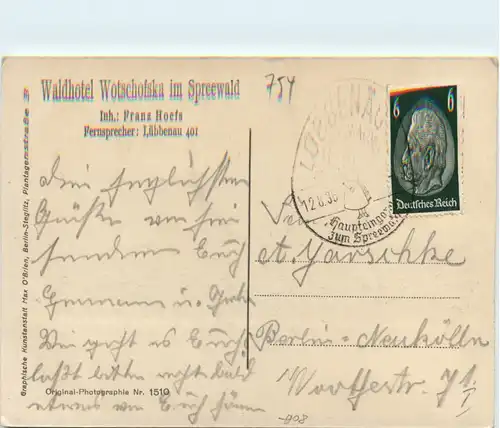 Waldhotel Wotschofska im Spreewald
Inh.: Franz Hoefs
Fernsprecher: Lübbenau 401
754
Die herzlichsten
Grüße von hier
senden Euch
Hermann u.
Wie geht es Euch
laßt bitten recht bald
etwas von Euch hören
Graphische Kunstanstalt Max O'Brien, Berlin-Steglitz, Plantagenstraße
Original-Photographie Nr. 1519
LÜBBENAU
12.8.36
Haupteingang
zum Spreewald
6 6
Deutsches Reich
A. Jarschke
Berlin-Neukölln
Warthestr. 71
I
-808